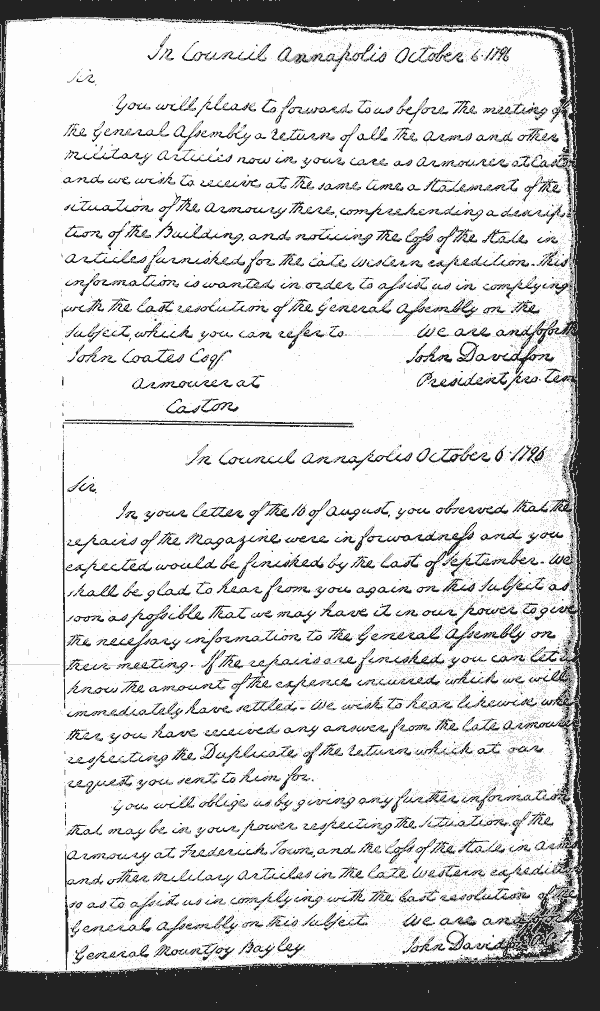 In Council Annapolis October 6 1796
Sir,
You will please to forward to us before the meeting of
the General Assembly a return of all the Arms and other
military Articles now in your care as Armourer at Easton
and we wish to receive at the same time a Statement of the
situation of the Armoury there, comprehending a descrip
tion of the Building, and noticing the loss of the State in
Articles furnished for the late Western expedition. This
information is wanted in order to assist us in complying
with the last resolution of the General Assembly on the
subject, which you can refer to We are and so forth
John Coates Esqr John Davidson
Armourer at President pro. tem
Easton
In Council Annapolis October 6 1796
Sir,
In your letter of the 10 of August, you observed that the
repairs of the Magazine were in forwardness and you
expected would be finished by the last of September. We
shall be glad to hear from you again on this subject as
soon as possible that we may have it in our power to give
the necessary information to the General Assembly on
their meeting. If the repairs are finished you can let us
know the amount of the expence incurred which we will
immediately have settled. We wish to hear likewise whe
ther you have received any answer from the late Armourer
respecting the Duplicate of the return which at our
request you sent to him for.
You will oblige us by giving any further information
that may be in your power respecting the situation of the
Armoury at Frederick Town, and the loss of the State in Arms
and other military Articles in the late Western expedition
so as to assist us in complying with the last resolution of the
General Assembly on this subject We are and
General Mountjoy Bayley John Davidson